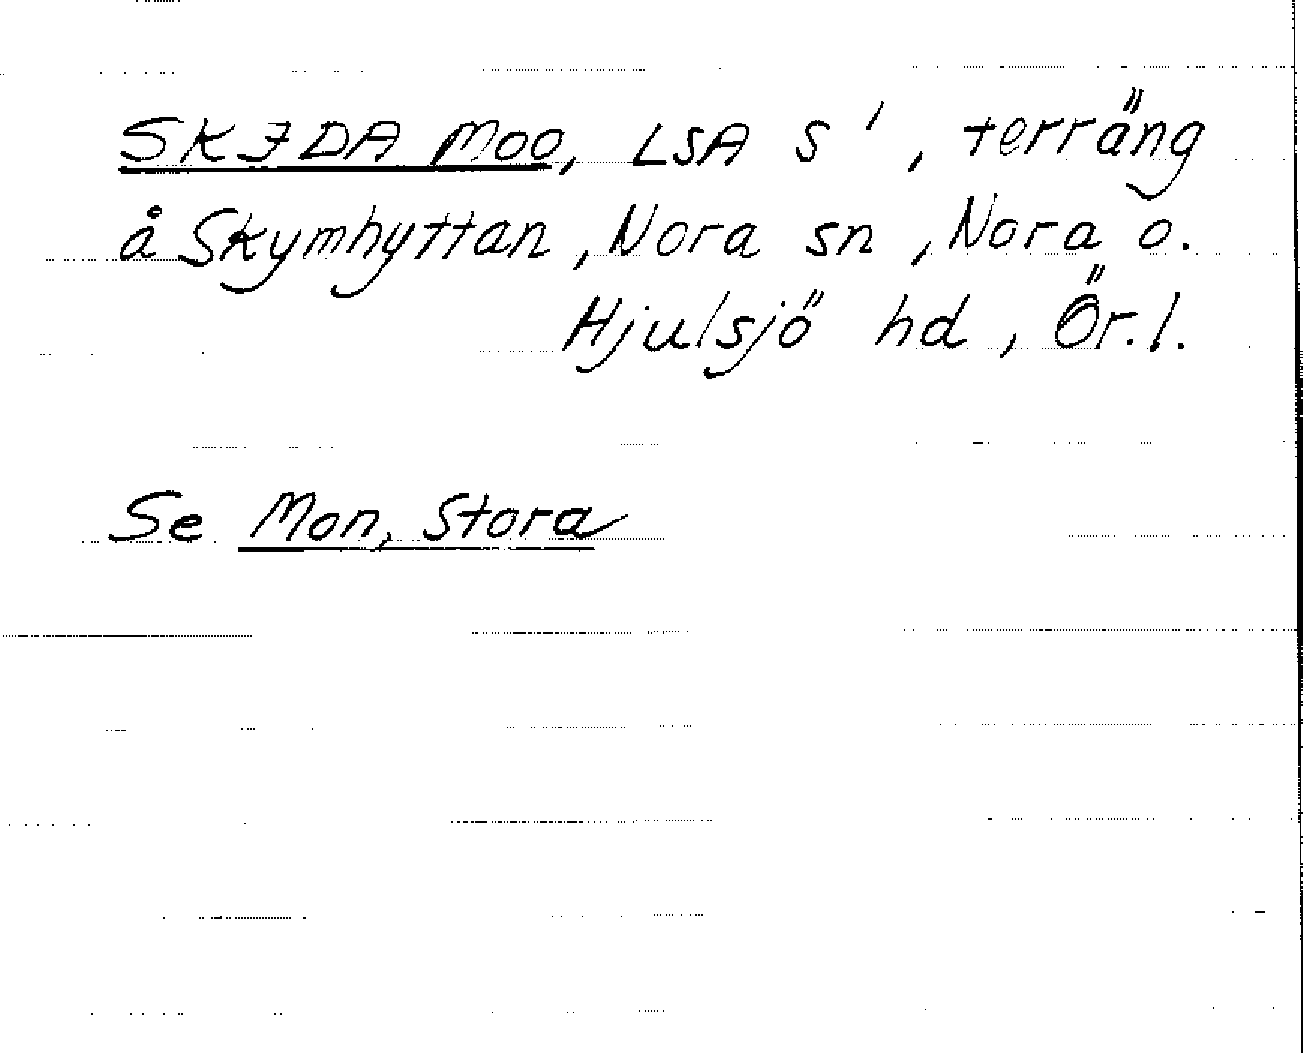 SKIDA MOO, LSA S', terräng
å Skymhyttan, Nora sn, Nora o.
Hjulsjö hd, Ör.l.
Se Mon, Stora